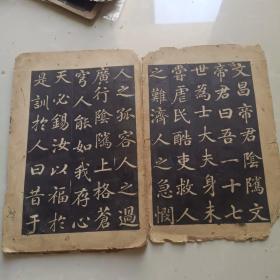 文昌帝君陰騭文
帝君曰吾一十七
世為士大夫身未
嘗虐民酷吏救人
之難濟人之急憫
人之孤容人之過
廣行陰騭上格蒼
穹人能如我存心
天必錫汝以福於
是訓於人曰昔于